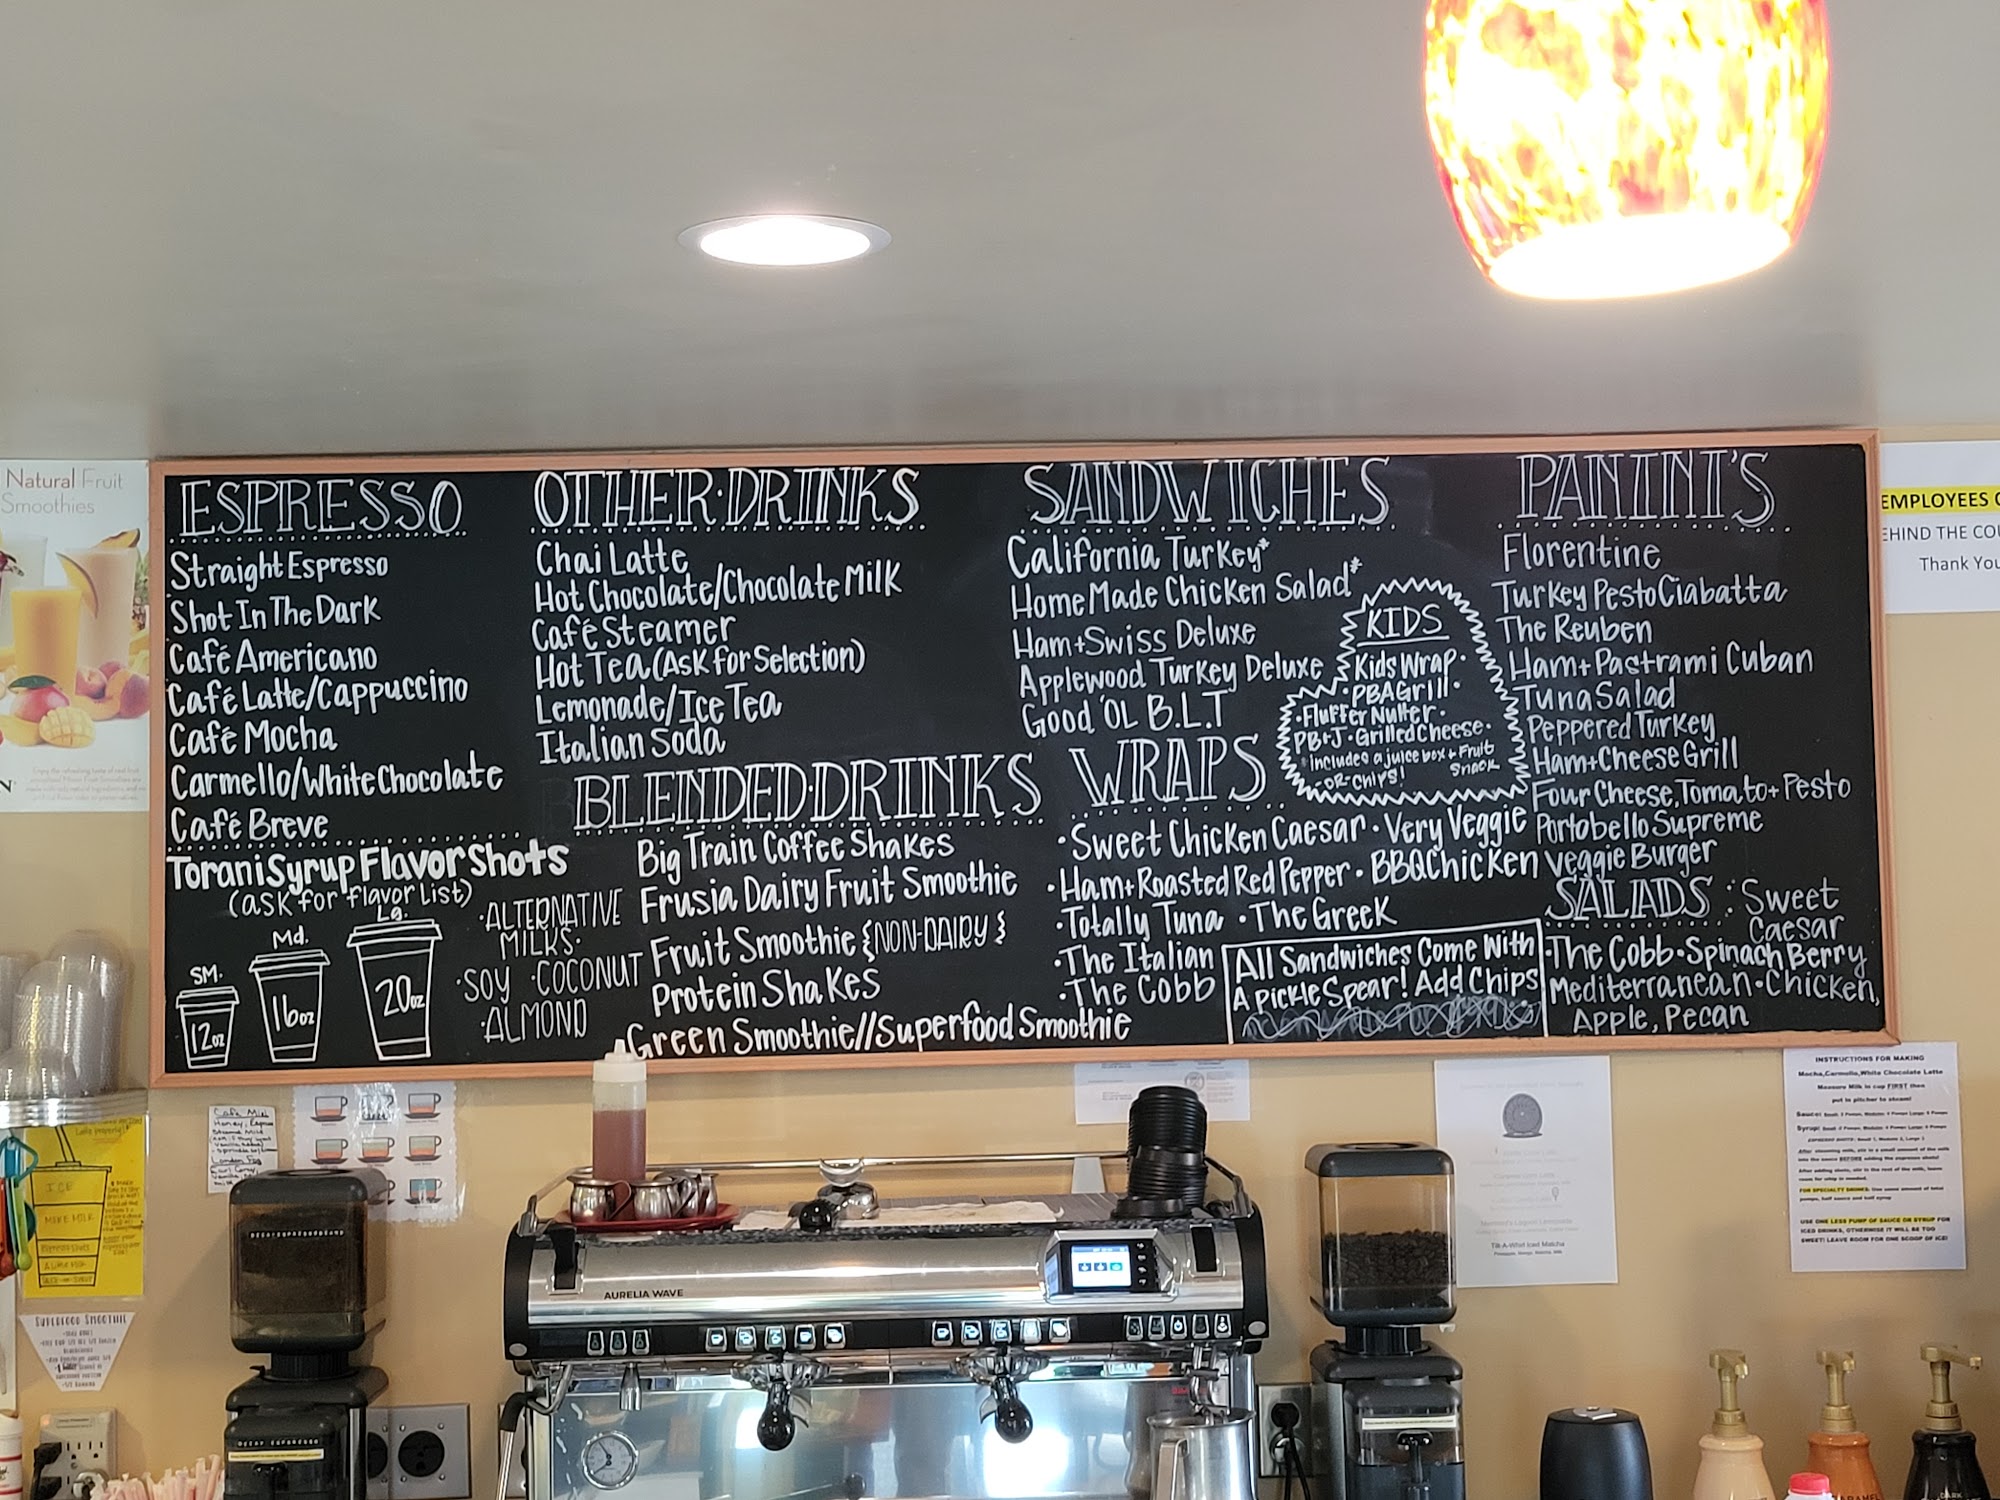 ESPRESSO
Straight Espresso
Shot In The Dark
Café Americano
Café Latte/Cappuccino
Café Mocha
Carmello/White Chocolate
Café Breve
Torani Syrup Flavor Shots
(ask for flavor List)
SM.
12oz
Md.
16oz
Lg.
20oz
·ALTERNATIVE
MILKS·
·SOY ·COCONUT
·ALMOND
OTHER·DRINKS
Chai Latte
Hot Chocolate/Chocolate Milk
Café Steamer
Hot Tea (Ask for Selection)
Lemonade/Ice Tea
Italian Soda
BLENDED·DRINKS
Big Train Coffee Shakes
Frusia Dairy Fruit Smoothie
Fruit Smoothie {NON-DAIRY}
Protein Shakes
Green Smoothie//Superfood Smoothie
SANDWICHES
California Turkey*
Home Made Chicken Salad*
Ham+Swiss Deluxe
Applewood Turkey Deluxe
Good 'OL B.L.T
KIDS
Kids Wrap·
·PBAGrill·
·Fluffer Nutter·
PB+J·Grilled Cheese·
*includes a juice box + Fruit
Snack
-OR-Chips!
WRAPS
·Sweet Chicken Caesar·Very Veggie
·Ham+Roasted Red Pepper·BBQ Chicken
·Totally Tuna ·The Greek
·The Italian
·The Cobb
All Sandwiches Come With
A Pickle Spear! Add Chips
PANINI'S
Florentine
Turkey Pesto Ciabatta
The Reuben
Ham+Pastrami Cuban
Tuna Salad
Peppered Turkey
Ham+Cheese Grill
Four Cheese, Tomato+Pesto
Portobello Supreme
Veggie Burger
SALADS : Sweet
Caesar
·The Cobb·Spinach Berry
Mediterranean·Chicken,
Apple, Pecan
Natural Fruit
Smoothies
EMPLOYEES
BEHIND THE
Thank You
INSTRUCTIONS FOR MAKING
Mocha,Carmello,White Chocolate Latte
Measure Milk in cup FIRST then
put in pitcher to steam!
USE ONE LESS PUMP OF SAUCE OR SYRUP FOR
ICED DRINKS, OTHERWISE IT WILL BE TOO
SWEET! LEAVE ROOM FOR ONE SCOOP OF ICE!
Tilt-A-Whirl Iced Matcha
ICE
SUPERFOOD SMOOTHIE
AURELIA WAVE
DECAF ESPRESSO
DARK